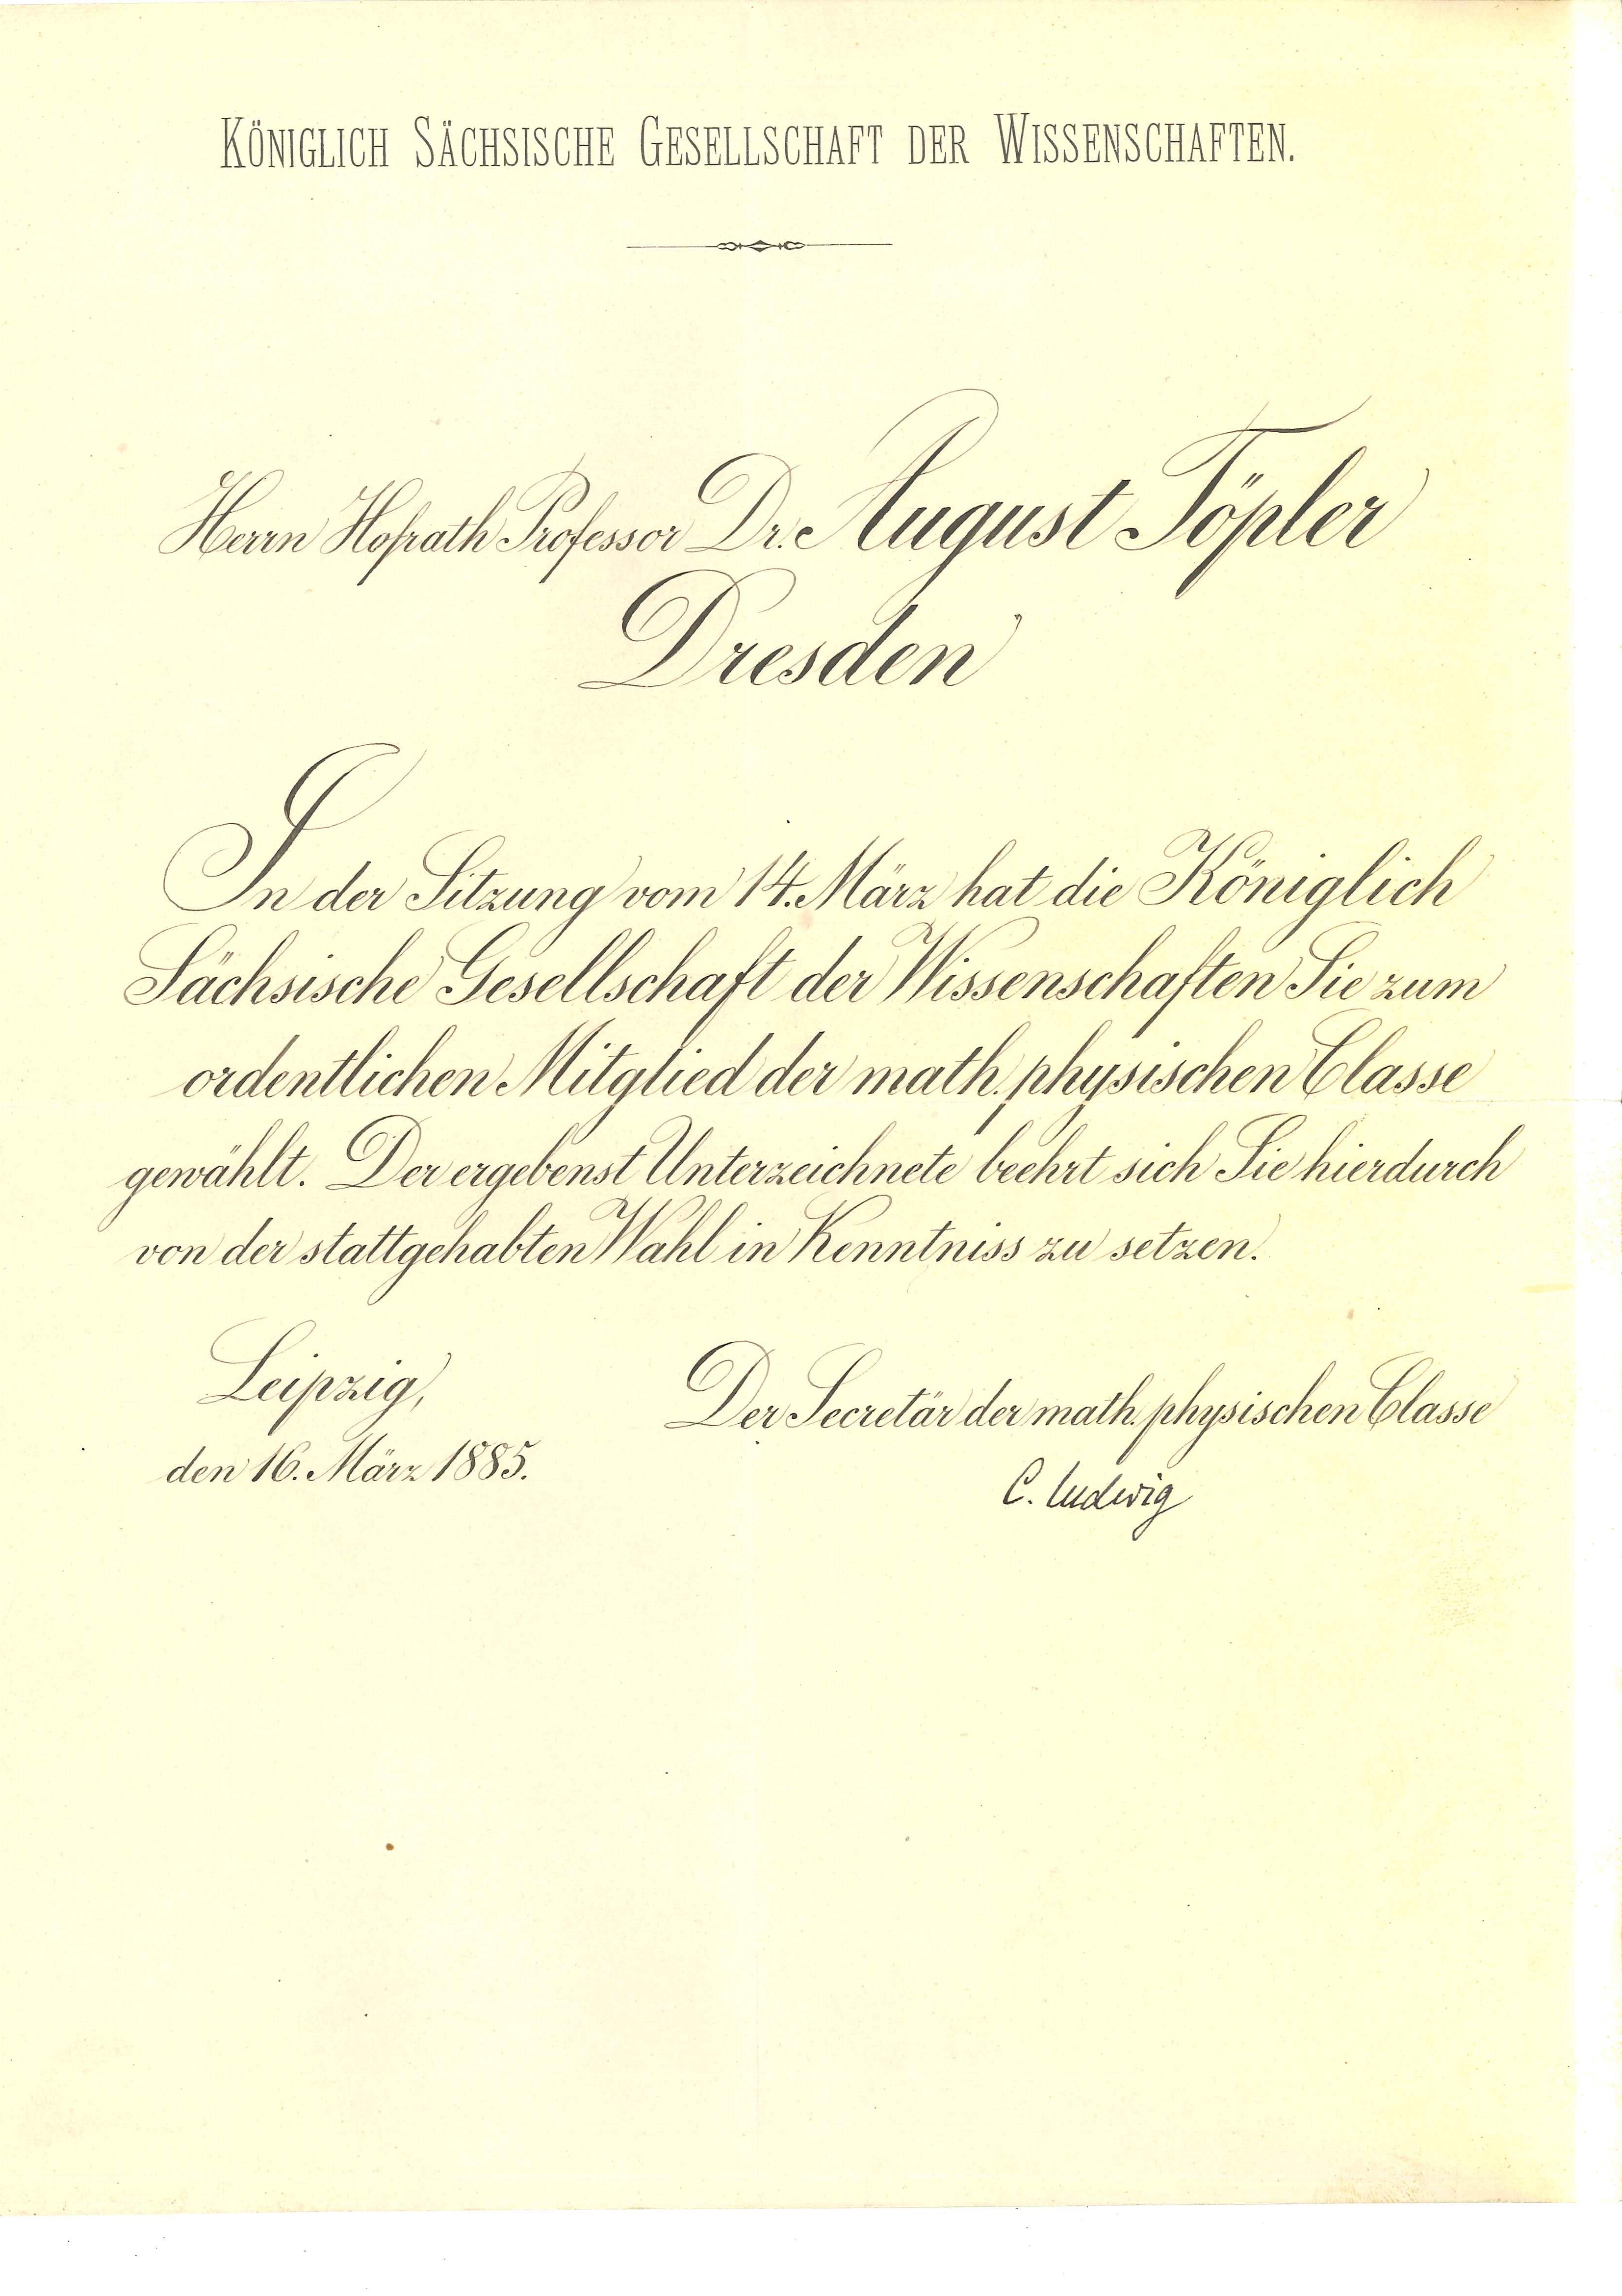 KÖNIGLICH SÄCHSISCHE GESELLSCHAFT DER WISSENSCHAFTEN.
Herrn Hofrath Professor Dr. August Töpler
Dresden
In der Sitzung vom 14. März hat die Königlich
Sächsische Gesellschaft der Wissenschaften Sie zum
ordentlichen Mitglied der math. physischen Classe
gewählt. Der ergebenst Unterzeichnete beehrt sich Sie hierdurch
von der stattgehabten Wahl in Kenntniss zu setzen.
Leipzig,
den 16. März 1885.
Der Secretär der math. physischen Classe
C. Ludwig